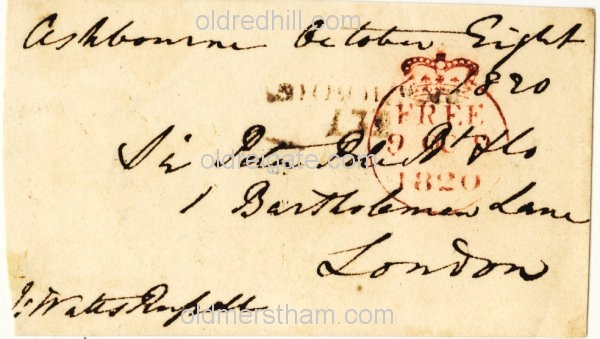 oldredhill.com
Ashbourne October Eight
1820
FREE
9 OC
1820
131
Sir Peter Bt & Co
oldreigate.com
1 Bartholomew Lane
London
J: Watts Russell
oldmerstham.com